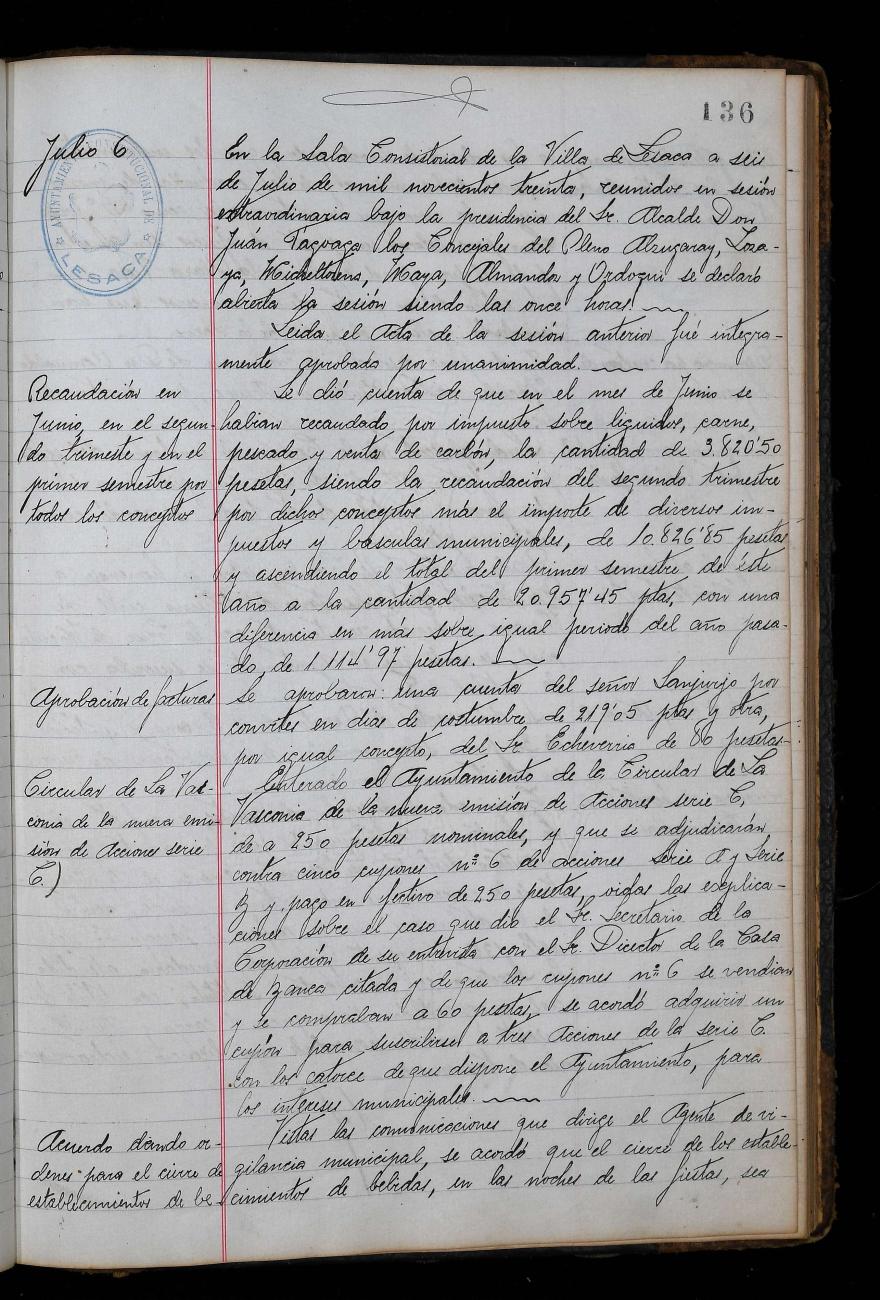 136
Julio 6
AYUNTAMIENTO CONSTITUCIONAL DE
LESACA
En la Sala Consistorial de la Villa de Lesaca a seis
de Julio de mil novecientos treinta, reunidos en sesión
extraordinaria bajo la presidencia del Sr. Alcalde Don
Juán Tagoaga los Concejales del Pleno Alzugaray, Loza-
ya, Micheltorena, Maya, Almandoz y Ordoqui se declaró
abierta la sesión siendo las once horas.
Leida el Acta de la sesión anterior fué integra-
mente aprobada por unanimidad.
Recaudación en
Junio, en el segun-
do trimeste y en el
primer semestre por
todos los conceptos
Se dió cuenta de que en el mes de Junio se
habian recaudado por impuesto sobre liguidos, carne,
pescado y venta de carbón, la cantidad de 3.820'50
pesetas, siendo la recaudación del segundo trimestre
por dichos conceptos más el importe de diversos im-
puestos y básculas municipales, de 10.826'85 pesetas
y ascendiendo el total del primer semestre de éste
año a la cantidad de 20.957'45 ptas, con una
diferencia en más sobre igual periodo del año pasa-
do, de 1114'97 pesetas.
Aprobación de facturas
Se aprobaron: una cuenta del señor Sanjurjo por
convites en dias de costumbre de 219'05 ptas y otra,
por igual concepto, del Sr. Echeverria de 80 pesetas-
Circular de La Vas-
conia de la nueva emi-
sión de Acciones serie
C.)
Enterado el Ayuntamiento de la Circular de La
Vasconia de la nueva emisión de Acciones serie C,
de a 250 pesetas nominales, y que se adjudicarán
contra cinco cupones nº 6 de acciones serie A y Serie
B y pago en fectivo de 250 pesetas, oidas las explica-
ciones sobre el caso que dió el Sr. Secretario de la
Corporación de su entrevista con el Sr. Director de la Casa
de Banca citada y de que los cupones nº 6 se vendian
y se compraban a 60 pesetas, se acordó adquirir un
cupón para suscribirse a tres Acciones de la serie C.
con los catorce de que dispone el Ayuntamiento, para
los intereses municipales.
Acuerdo dando or-
denes para el cierre de
establecimientos de be-
Vistas las comunicaciones que dirige el Agente de vi-
gilancia municipal, se acordó que el cierre de los estable-
cimientos de bebidas, en las noches de las fiestas, sea